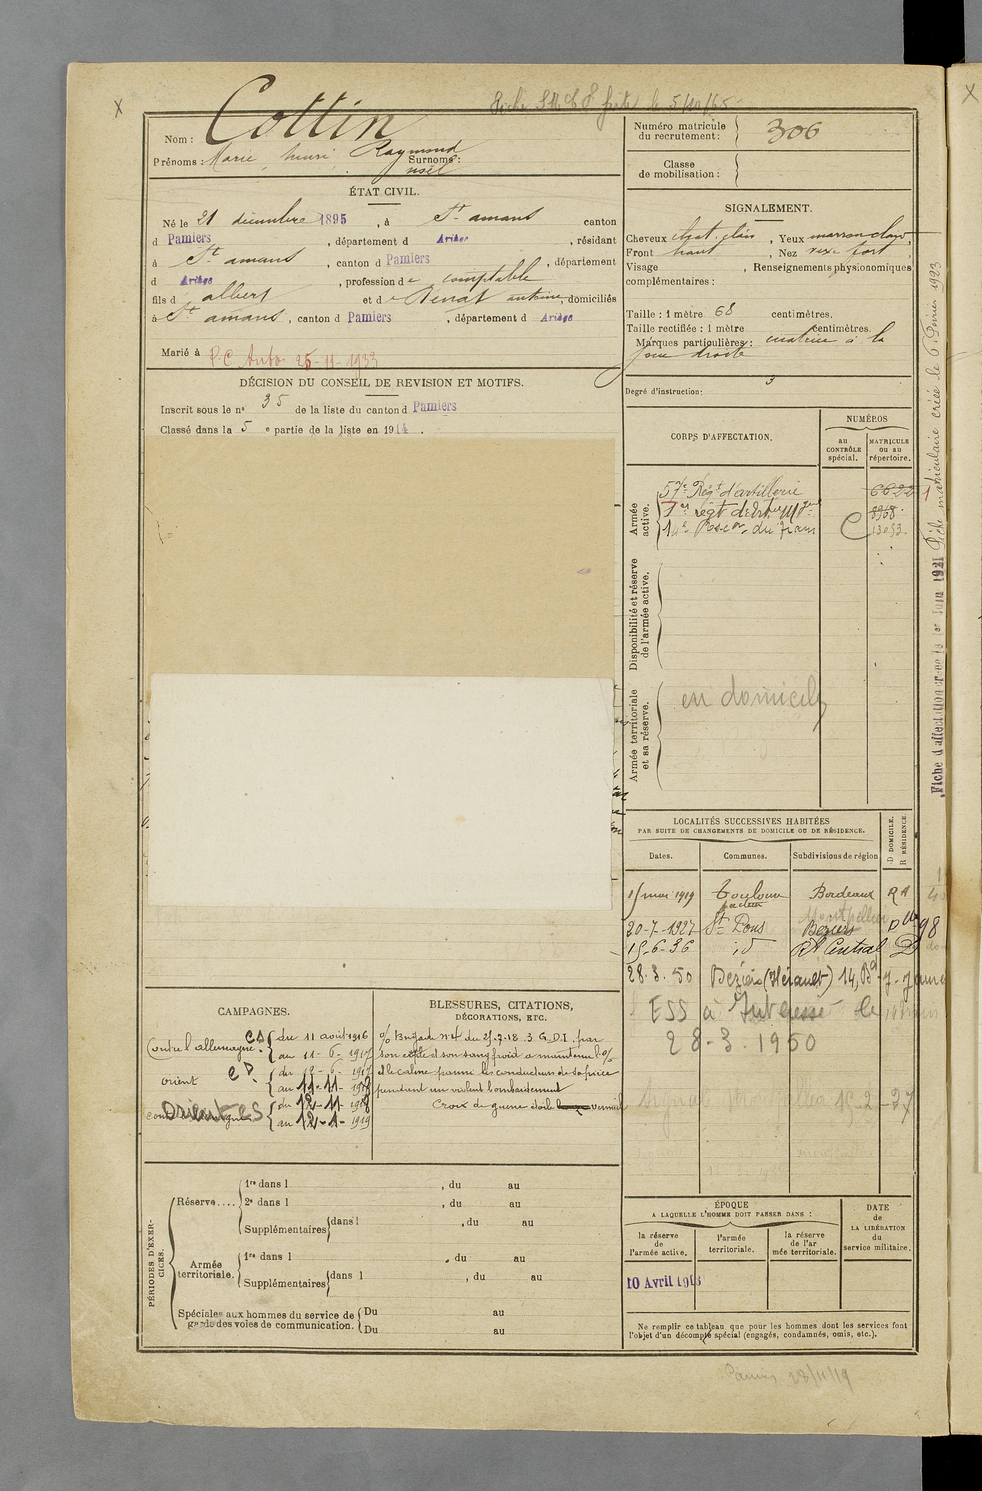 le 5/10/65
Nom : Cottin
Prénoms : Marie, henri Raymond Surnoms :
noël
ÉTAT CIVIL.
Né le 21 décembre 1895, à St amans canton
d Pamiers, département d Ariège, résidant
à St amans, canton d Pamiers, département
d Ariège, profession de comptable
fils d albert et de antoine, domiciliés
à St amans, canton d Pamiers, département d Ariège
Marié à 25-11-1933
DÉCISION DU CONSEIL DE REVISION ET MOTIFS.
Inscrit sous le n° 35 de la liste du canton d Pamiers
Classé dans la 5 e partie de la liste en 1914.
CAMPAGNES.
Contre l'allemagne CD du 11 août 1916
au 11-6-1917
Orient CD du 12-6-1917
au 11-11-1918
Orient CS du 12-11-1918
au 12-1-1919
BLESSURES, CITATIONS,
DÉCORATIONS, ETC.
O/ Brigade n°4 du 25-7-18. 3 G.D.I. par
son calme et son sang froid a maintenu l'O/
et le calme parmi les conducteurs de sa pièce
pendant un violent bombardement
Croix de guerre étoile vermeil
PÉRIODES D'EXERCICES.
Réserve....
1re dans l , du au
2e dans l , du au
Supplémentaires dans l , du au
Armée territoriale.
1re dans l , du au
Supplémentaires dans l , du au
Spéciales aux hommes du service de garde des voies de communication.
Du au
Du au
Numéro matricule du recrutement : 306
Classe de mobilisation :
SIGNALEMENT.
Cheveux chat. clair, Yeux marron clair,
Front haut, Nez rect. fort,
Visage , Renseignements physionomiques
complémentaires :
Taille : 1 mètre 68 centimètres.
Taille rectifiée : 1 mètre centimètres.
Marques particulières : cicatrice à la
joue droite
Degré d'instruction : 3
CORPS D'AFFECTATION.
NUMÉROS
au CONTRÔLE spécial.
MATRICULE ou au répertoire.
Armée active.
57e Régt d'artillerie 6622
1er régt d'Art. 8908
14e 13053
Disponibilité et réserve de l'armée active.
Armée territoriale et sa réserve.
en domicile
LOCALITÉS SUCCESSIVES HABITÉES
PAR SUITE DE CHANGEMENTS DE DOMICILE OU DE RÉSIDENCE.
Dates.
Communes.
Subdivisions de région
D DOMICILE.
R RÉSIDENCE.
15 mai 1919 Toulouse Bordeaux R
20-7-1927 St Pons Montpellier Béziers D
15-6-36 id Rt Central D
28.3.50 Béziers (Hérault) 14, Bd
ESS à Intéressé le
28-3.1950
15-2-37
ÉPOQUE
A LAQUELLE L'HOMME DOIT PASSER DANS :
la réserve de l'armée active.
l'armée territoriale.
la réserve de l'armée territoriale.
DATE de LA LIBÉRATION du service militaire.
10 Avril 1918
Ne remplir ce tableau que pour les hommes dont les services font
l'objet d'un décompte spécial (engagés, condamnés, omis, etc.).
Fiche d'affectation créée le 1er Juin 1921
Fiche matriculaire créée le 6 Février 1923
Pamiers 28/11/19